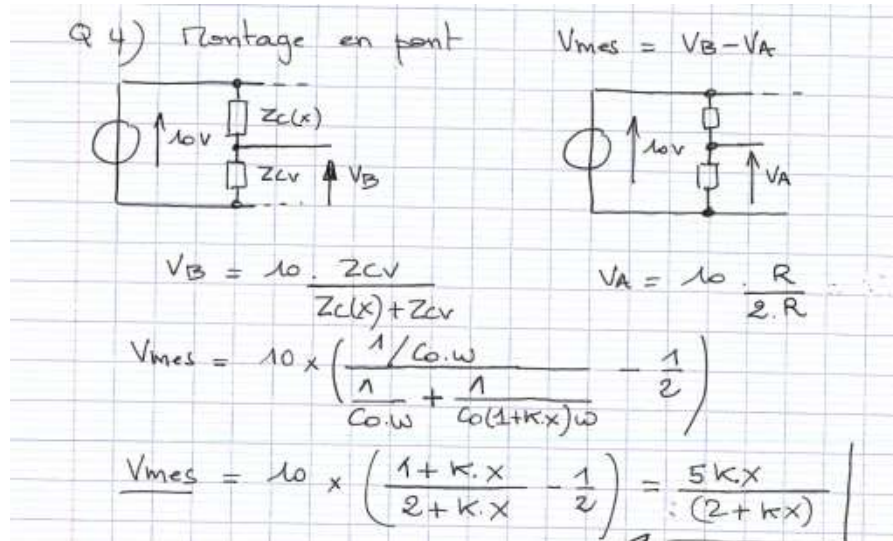 Q 4) Montage en pont Vmes = VB - VA
10V Zc(x) ZCV VB 10V VA
VB = 10 . ZCV / (Zc(x) + Zcv) VA = 10 . R / (2.R)
Vmes = 10 x ( (1/Co.w) / (1/(Co.w) + 1/(Co(1+K.x)w)) - 1/2 )
Vmes = 10 x ( (1+K.X)/(2+K.X) - 1/2 ) = 5K.X / (2+KX)